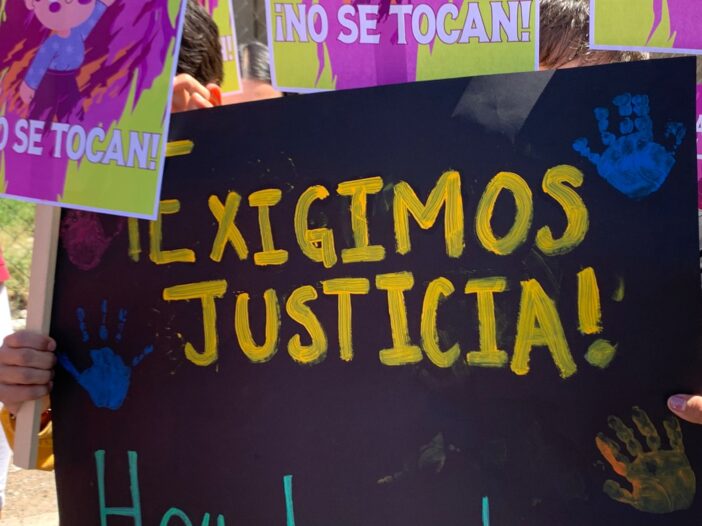 ¡NO SE TOCAN!
NO SE TOCAN!
¡EXIGIMOS
JUSTICIA!